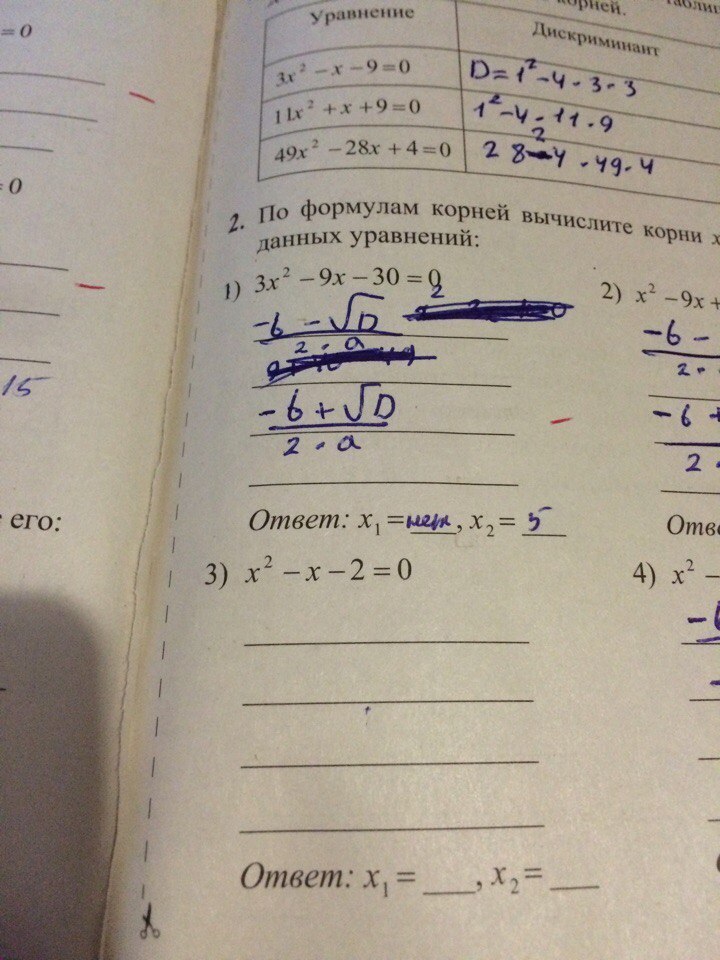 корней.
Уравнение Дискриминант
3x² − x − 9 = 0 D = 1² − 4 · 3 · 3
11x² + x + 9 = 0 1² − 4 · 11 · 9
49x² − 28x + 4 = 0 28² − 4 · 49 · 4
= 0
= 0
15
его:
2. По формулам корней вычислите корни x
данных уравнений:
1) 3x² − 9x − 30 = 0
−b − √D
2 · a
−b + √D
2 · a
Ответ: x₁ = нет, x₂ = 5
2) x² − 9x +
−b −
2 ·
−b +
2 ·
3) x² − x − 2 = 0
Ответ: x₁ = ___, x₂ = ___
4) x² −